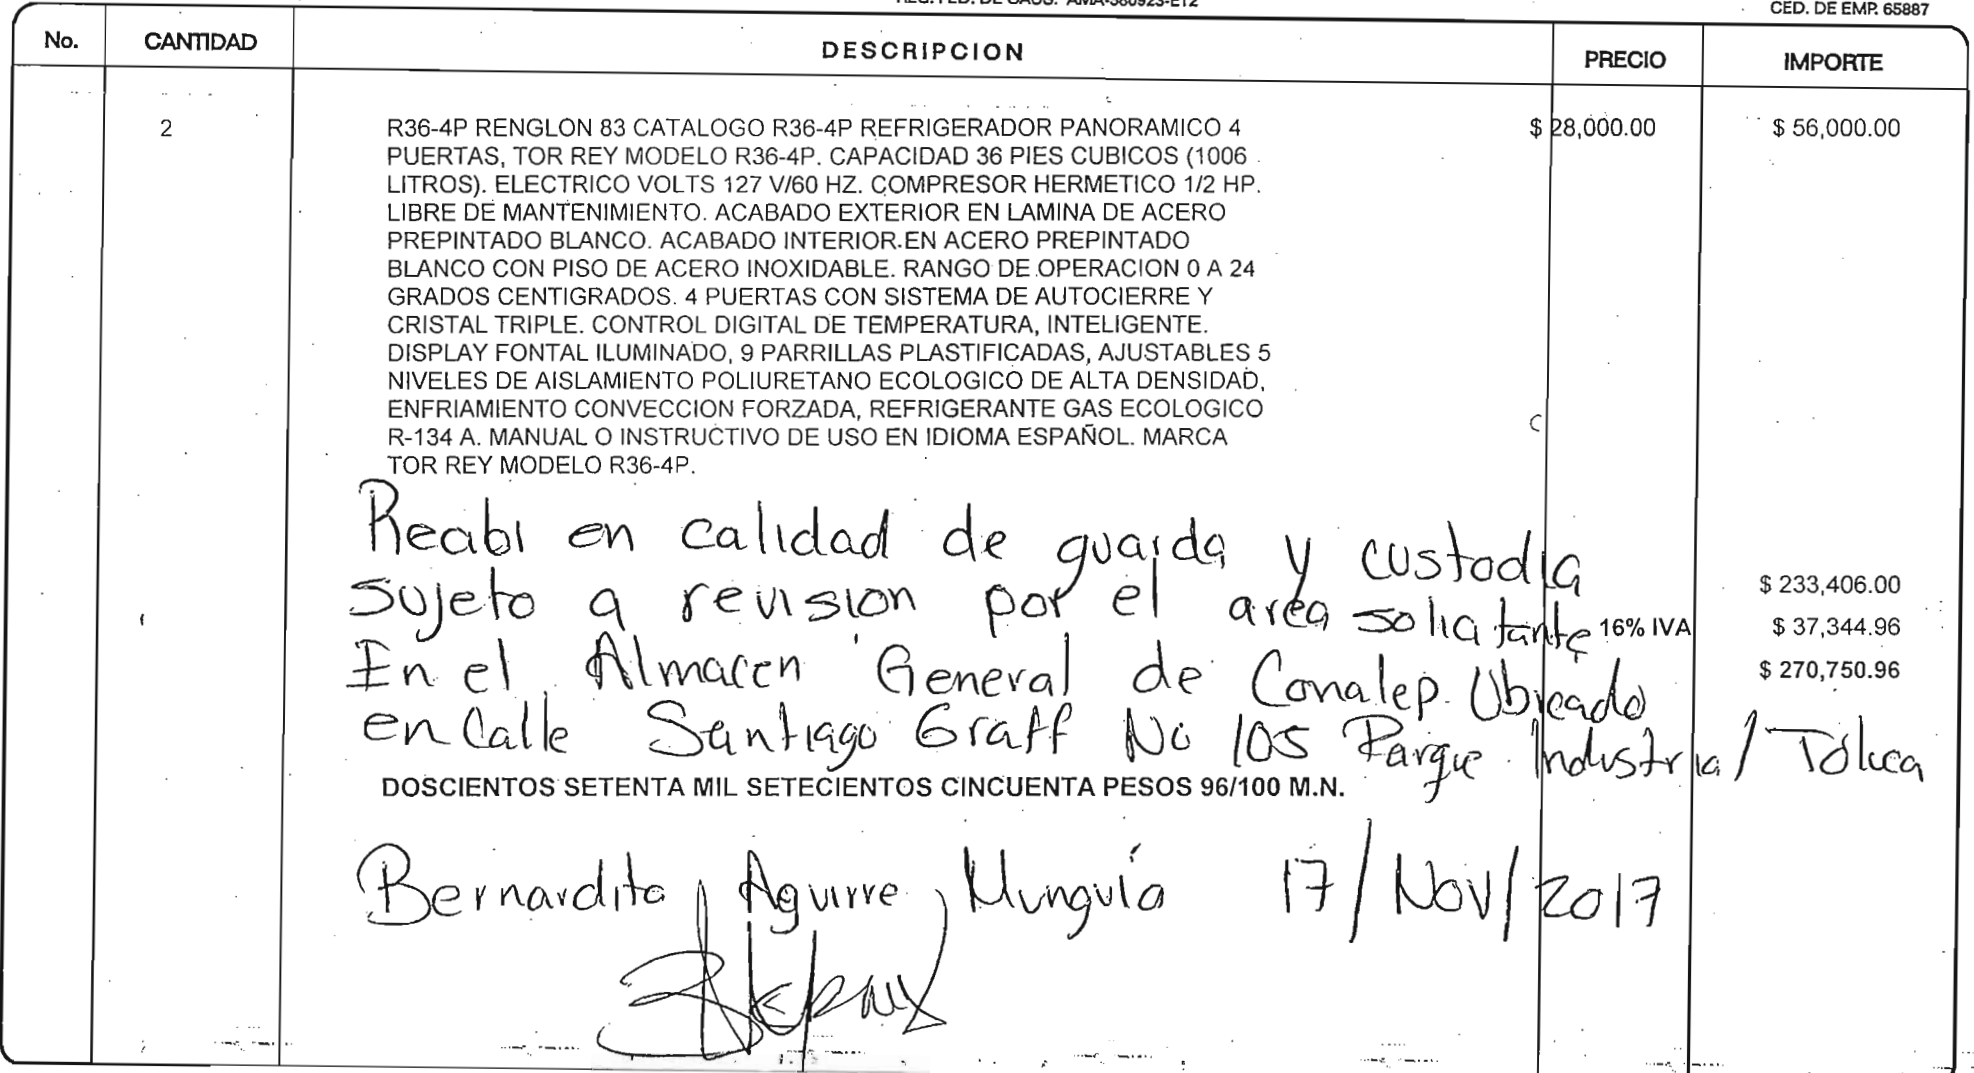 REG. FED. DE CAUS. AMA-380923-E12
CED. DE EMP. 65887
No. CANTIDAD DESCRIPCION PRECIO IMPORTE
2 R36-4P RENGLON 83 CATALOGO R36-4P REFRIGERADOR PANORAMICO 4 $ 28,000.00 $ 56,000.00
PUERTAS, TOR REY MODELO R36-4P. CAPACIDAD 36 PIES CUBICOS (1006
LITROS). ELECTRICO VOLTS 127 V/60 HZ. COMPRESOR HERMETICO 1/2 HP.
LIBRE DE MANTENIMIENTO. ACABADO EXTERIOR EN LAMINA DE ACERO
PREPINTADO BLANCO. ACABADO INTERIOR EN ACERO PREPINTADO
BLANCO CON PISO DE ACERO INOXIDABLE. RANGO DE OPERACION 0 A 24
GRADOS CENTIGRADOS. 4 PUERTAS CON SISTEMA DE AUTOCIERRE Y
CRISTAL TRIPLE. CONTROL DIGITAL DE TEMPERATURA, INTELIGENTE.
DISPLAY FONTAL ILUMINADO, 9 PARRILLAS PLASTIFICADAS, AJUSTABLES 5
NIVELES DE AISLAMIENTO POLIURETANO ECOLOGICO DE ALTA DENSIDAD,
ENFRIAMIENTO CONVECCION FORZADA, REFRIGERANTE GAS ECOLOGICO
R-134 A. MANUAL O INSTRUCTIVO DE USO EN IDIOMA ESPAÑOL. MARCA
TOR REY MODELO R36-4P.
Recibi en calidad de guarda y custodia
$ 233,406.00
sujeto a revision por el area solicitante
16% IVA $ 37,344.96
En el Almacen General de Conalep. Ubicado
$ 270,750.96
en Calle Santiago Graff No 105 Parque Industrial Toluca
DOSCIENTOS SETENTA MIL SETECIENTOS CINCUENTA PESOS 96/100 M.N.
Bernardita Aguirre Munguía 17/Nov/2017